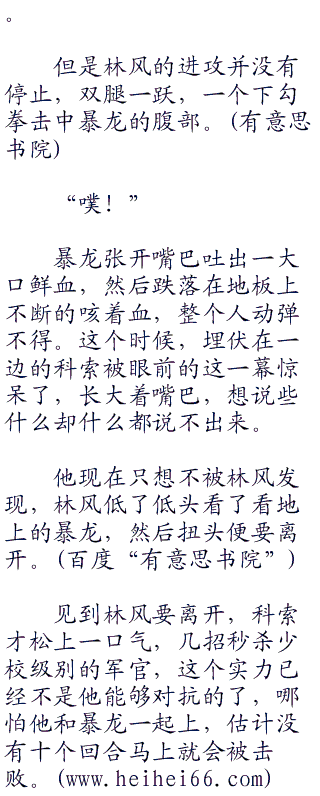 。
但是林风的进攻并没有
停止，双腿一跃，一个下勾
拳击中暴龙的腹部。(有意思
书院)
“噗！”
暴龙张开嘴巴吐出一大
口鲜血，然后跌落在地板上
不断的咳着血，整个人动弹
不得。这个时候，埋伏在一
边的科索被眼前的这一幕惊
呆了，长大着嘴巴，想说些
什么却什么都说不出来。
他现在只想不被林风发
现，林风低了低头看了看地
上的暴龙，然后扭头便要离
开。(百度“有意思书院”)
见到林风要离开，科索
才松上一口气，几招秒杀少
校级别的军官，这个实力已
经不是他能够对抗的了，哪
怕他和暴龙一起上，估计没
有十个回合马上就会被击
败。(www.heihei66.com)